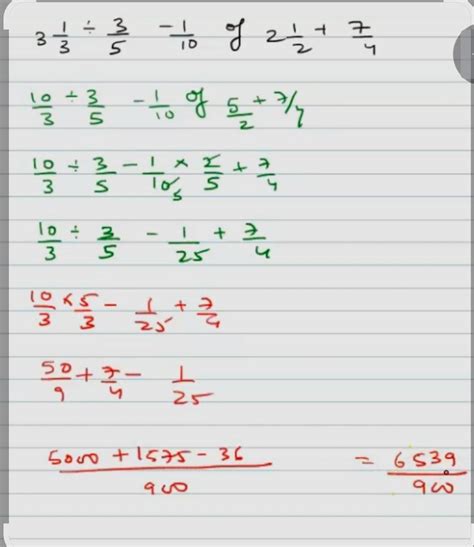 3 1/3 ÷ 3/5 - 1/10 of 2 1/2 + 7/4
10/3 ÷ 3/5 - 1/10 of 5/2 + 7/4
10/3 ÷ 3/5 - 1/10 5 × 2/5 + 7/4
10/3 ÷ 3/5 - 1/25 + 7/4
10/3 × 5/3 - 1/25 + 7/4
50/9 + 7/4 - 1/25
5000 + 1575 - 36 / 900 = 6539/900